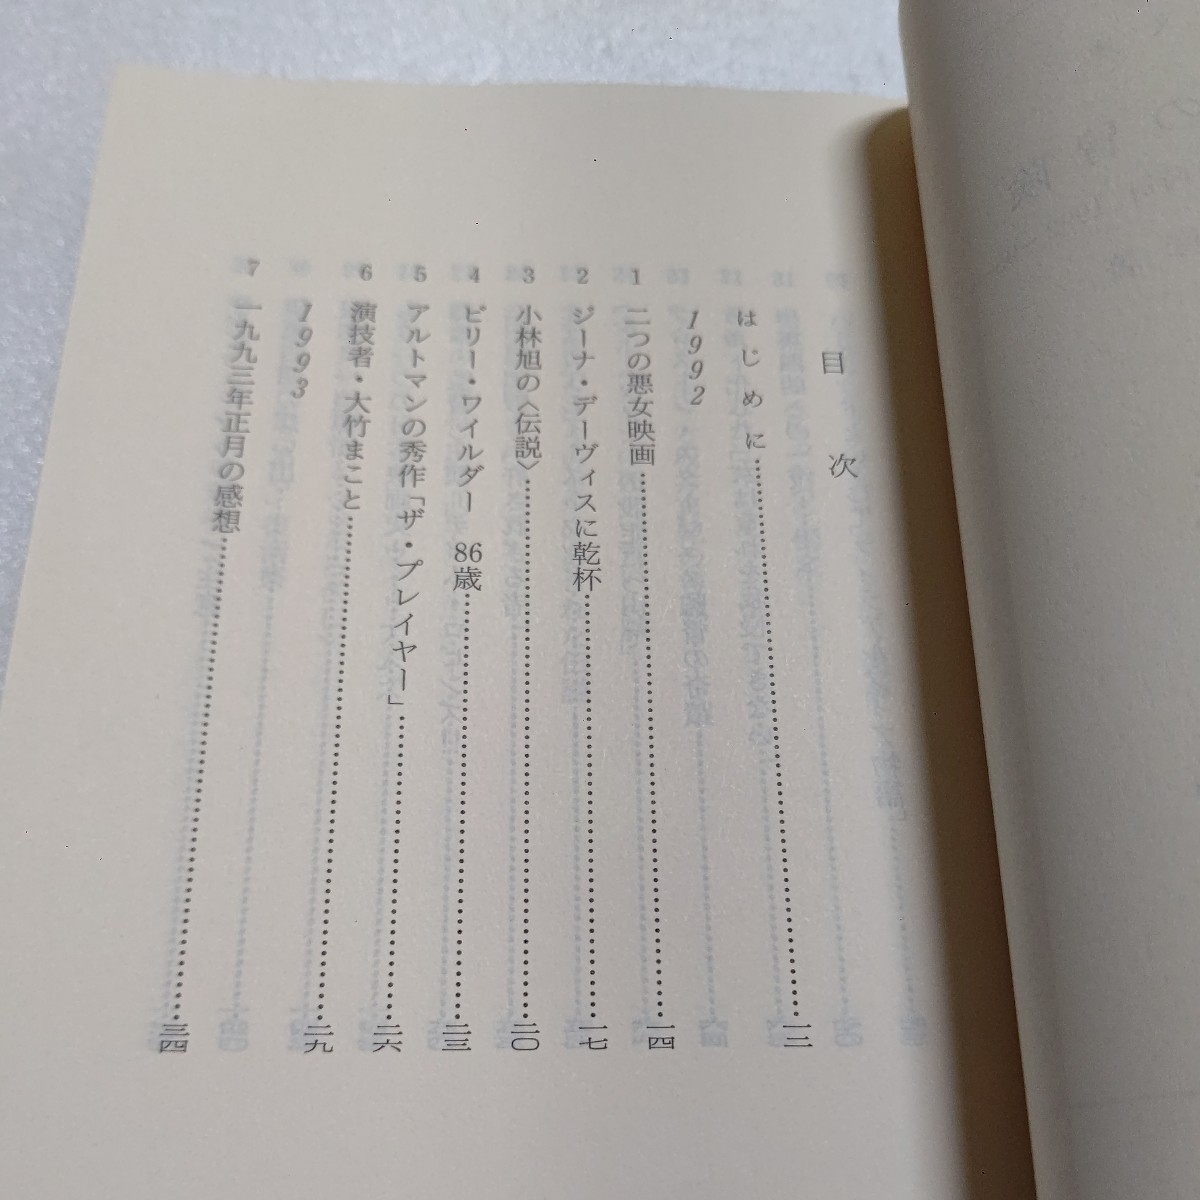 目次
はじめに……一二
1992
1 二つの悪女映画……一四
2 ジーナ・デーヴィスに乾杯……一七
3 小林旭の〈伝説〉……二〇
4 ビリー・ワイルダー 86歳……二三
5 アルトマンの秀作「ザ・プレイヤー」……二六
6 演技者・大竹まこと……二九
1993
7 一九九三年正月の感想……三四